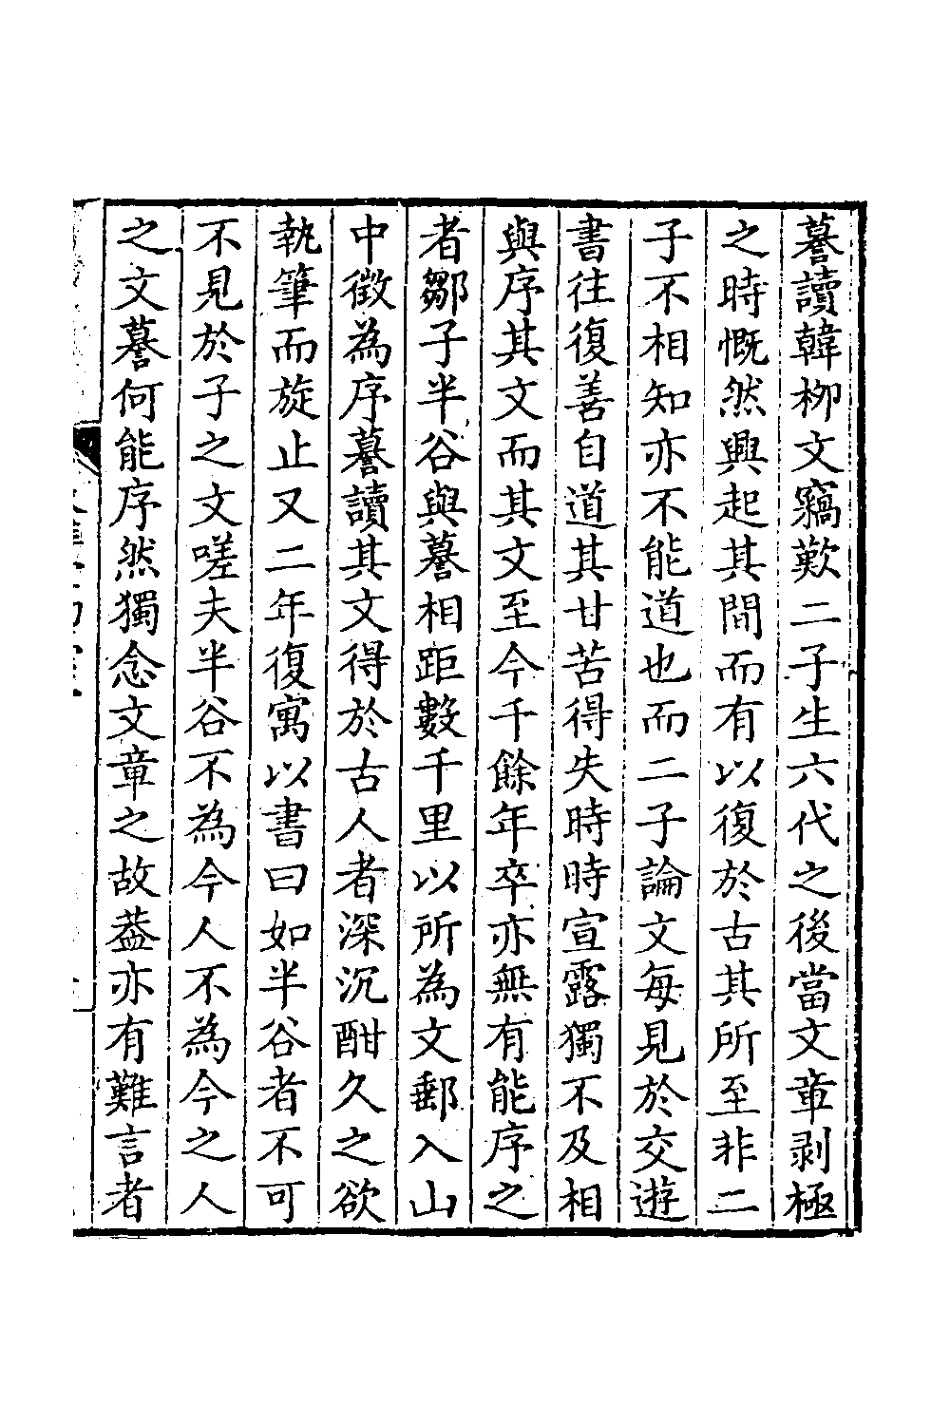 謩讀韓栁文竊歎二子生六代之後當文章剥極
之時慨然興起其間而有以復於古其所至非二
子不相知亦不能道也而二子論文每見於交遊
書往復善自道其甘苦得失時時宣露獨不及相
與序其文而其文至今千餘年卒亦無有能序之
者鄒子半谷與謩相距數千里以所為文郵入山
中徴為序謩讀其文得於古人者深沉酣久之欲
執筆而旋止又二年復寓以書曰如半谷者不可
不見於子之文嗟夫半谷不為今人不為今之人
之文謩何能序然獨念文章之故葢亦有難言者